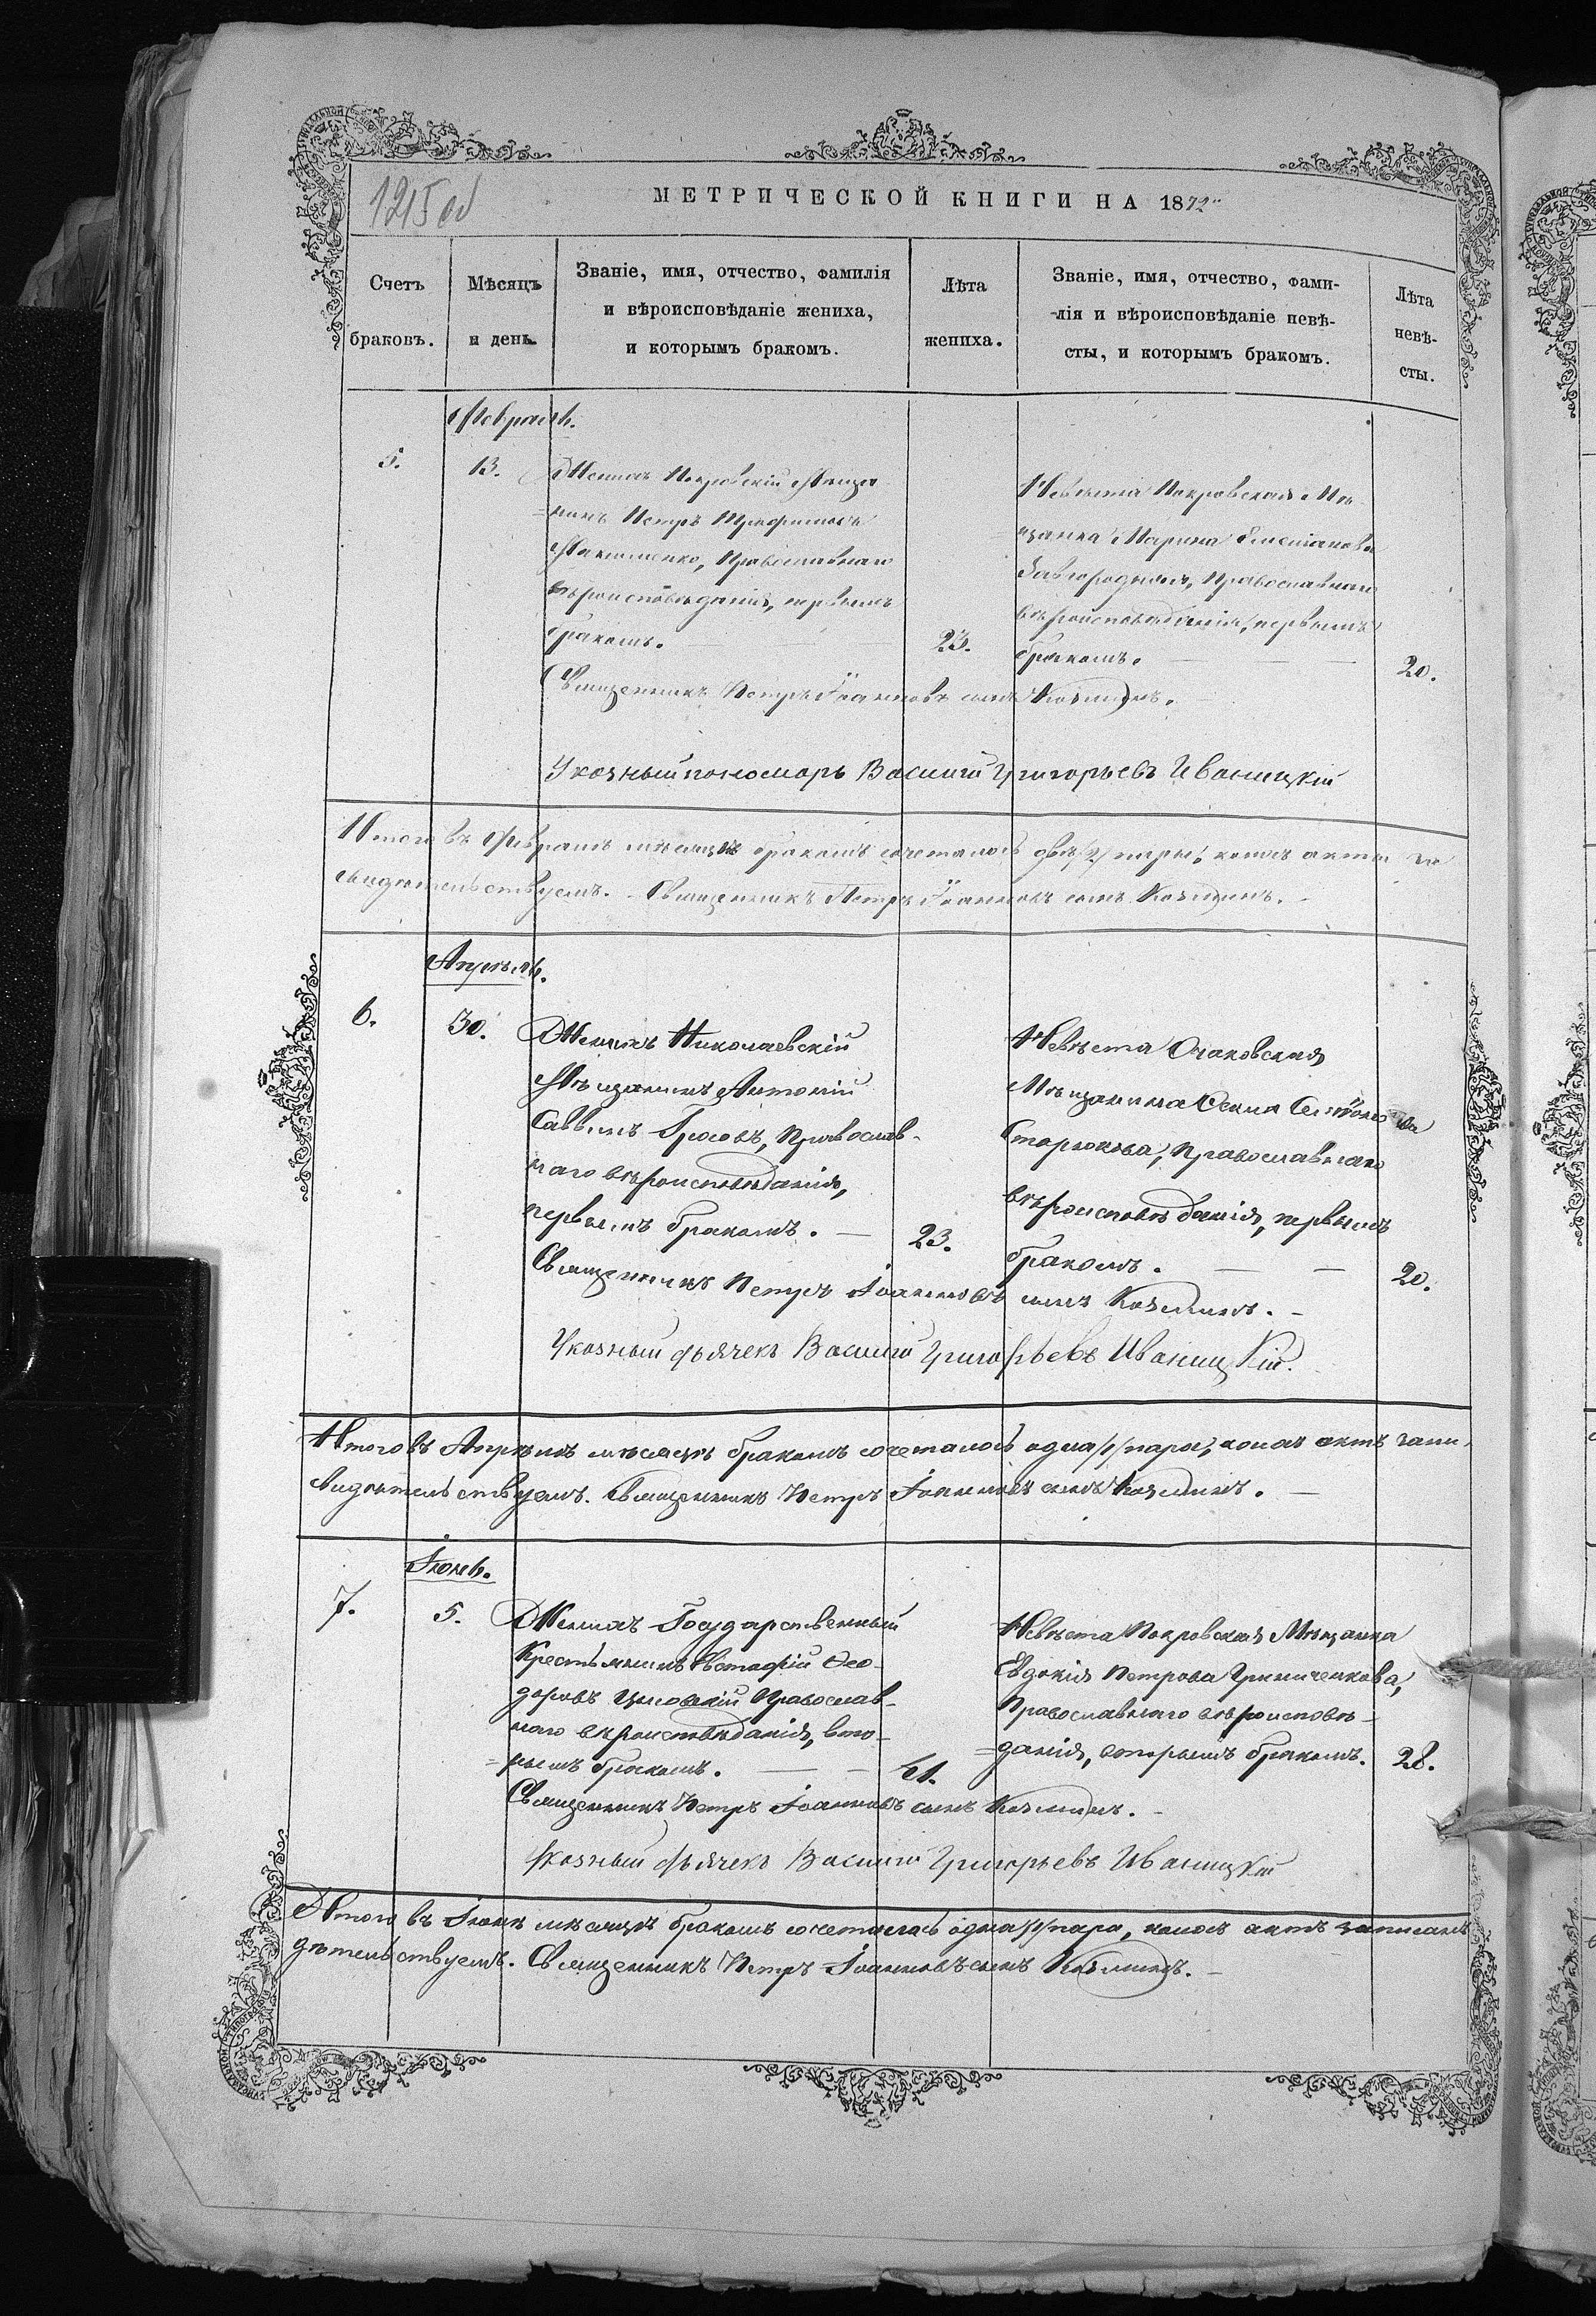 1215 об
МЕТРИЧЕСКОЙ КНИГИ НА 1872
Счетъ браковъ.
Мѣсяцъ и день
Званіе, имя, отчество, фамилія
и вѣроисповѣданіе жениха,
и которымъ бракомъ.
Лѣта жениха.
Званіе, имя, отчество, фами-
-лія и вѣроисповѣданіе невѣ-
сты, и которымъ бракомъ.
Лѣта невѣ-
сты.
Февраль.
5.
13.
Женихъ Покровскій Мѣща
=нинъ Петръ Трофимовъ
Максименко, Православнаго
вѣроисповѣданія, первымъ
бракомъ.
23.
Невѣста Покровская Мѣ-
щанка Марина
Завгородняя, Православнаго
вѣроисповѣданія, первымъ
бракомъ.
20.
Священникъ Петръ Іоанновъ сынъ Козминъ.
Указный пономарь Василій Григорьевъ Иваницкій
Итого въ Февралѣ мѣсяцѣ бракомъ сочеталось двѣ /2/ пары, коихъ акты за
свидѣтельствуемъ. Священникъ Петръ Іоанновъ сынъ Козминъ.
Апрѣль.
6.
30.
Женихъ Николаевскій
Мѣщанинъ Антоній
Саввинъ Гросовъ, Православ-
наго вѣроисповѣданія,
первымъ бракомъ.
23.
Невѣста Очаковская
Мѣщанка
Старюкова, Православнаго
вѣроисповѣданія, первымъ
бракомъ.
20.
Священникъ Петръ Іоанновъ сынъ Козминъ.
Указный дьячекъ Василій Григорьевъ Иваницкій.
Итого въ Апрѣлѣ мѣсяцѣ бракомъ сочеталось одна /1/ пара, коихъ актъ
видѣтельствуемъ. Священникъ Петръ Іоанновъ сынъ Козминъ.
Іюнь.
7.
5.
Женихъ Государственный
Крестьянинъ Евстафій Ѳео-
доровъ Православ-
наго вѣроисповѣданія, вто-
=рымъ бракомъ.
41.
Невѣста Покровская Мѣщанка
Евдокія Петрова Гриниченкова,
Православнаго вѣроисповѣ-
=данія, вторымъ бракомъ.
28.
Священникъ Петръ Іоанновъ сынъ Козминъ.
Указный дьячекъ Василій Григорьевъ Иваницкій
Итого въ Іюнѣ мѣсяцѣ бракомъ сочеталось одна /1/ пара, коихъ актъ
дѣтельствуемъ. Священникъ Петръ Іоанновъ сынъ Козминъ.